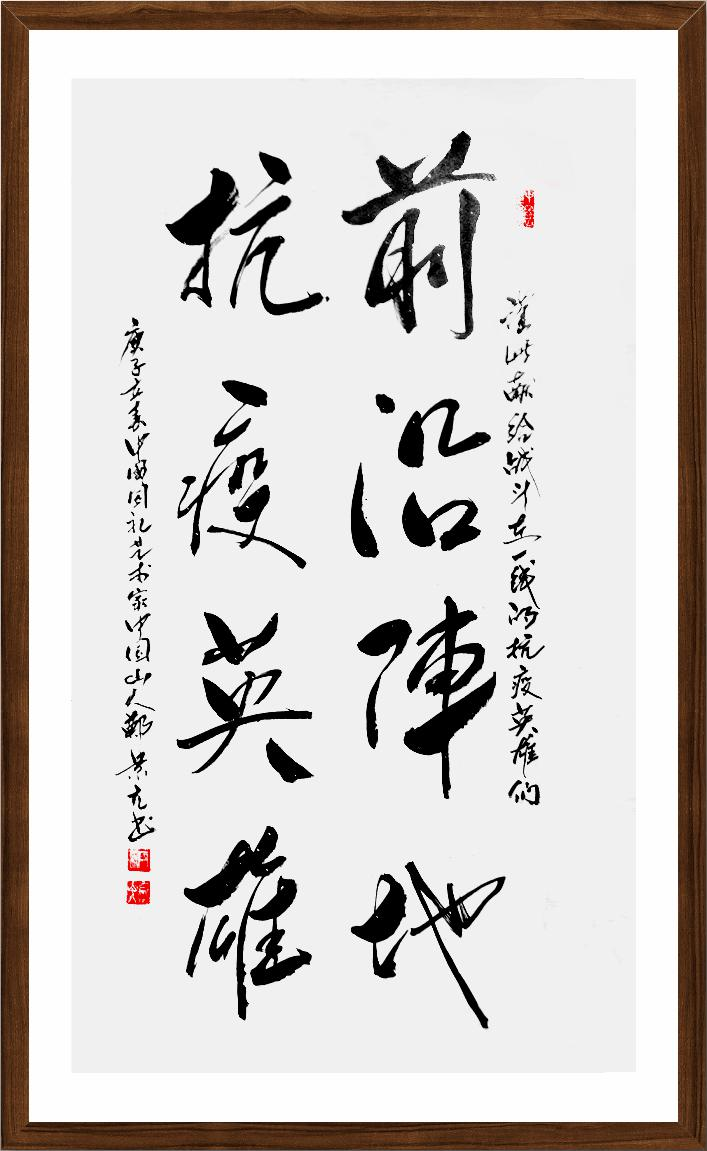 谨此献给战斗在一线的抗疫英雄们
前沿陣地
抗疫英雄
庚子立春中國国礼艺术家中国山人鄭景书